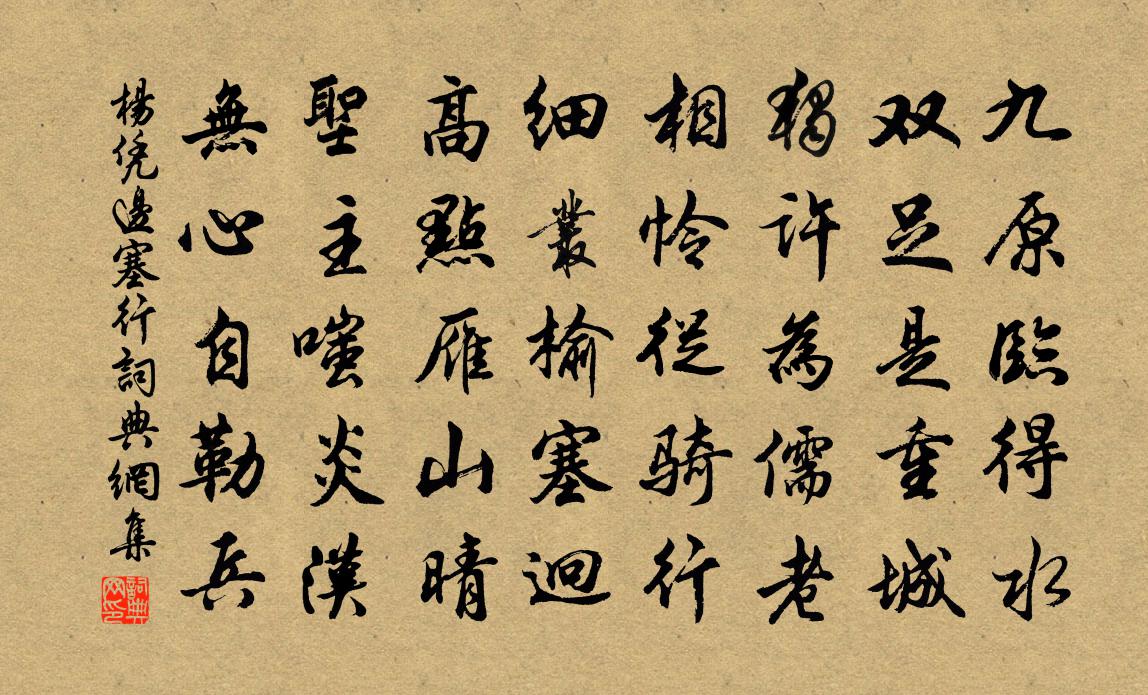 九原臨得水
双足是重城
獨許為儒老
相怜從騎行
細叢榆塞迥
高點雁山晴
聖主嗤炎漢
無心自勒兵
楊凭邊塞行詞典網集
詞典网印